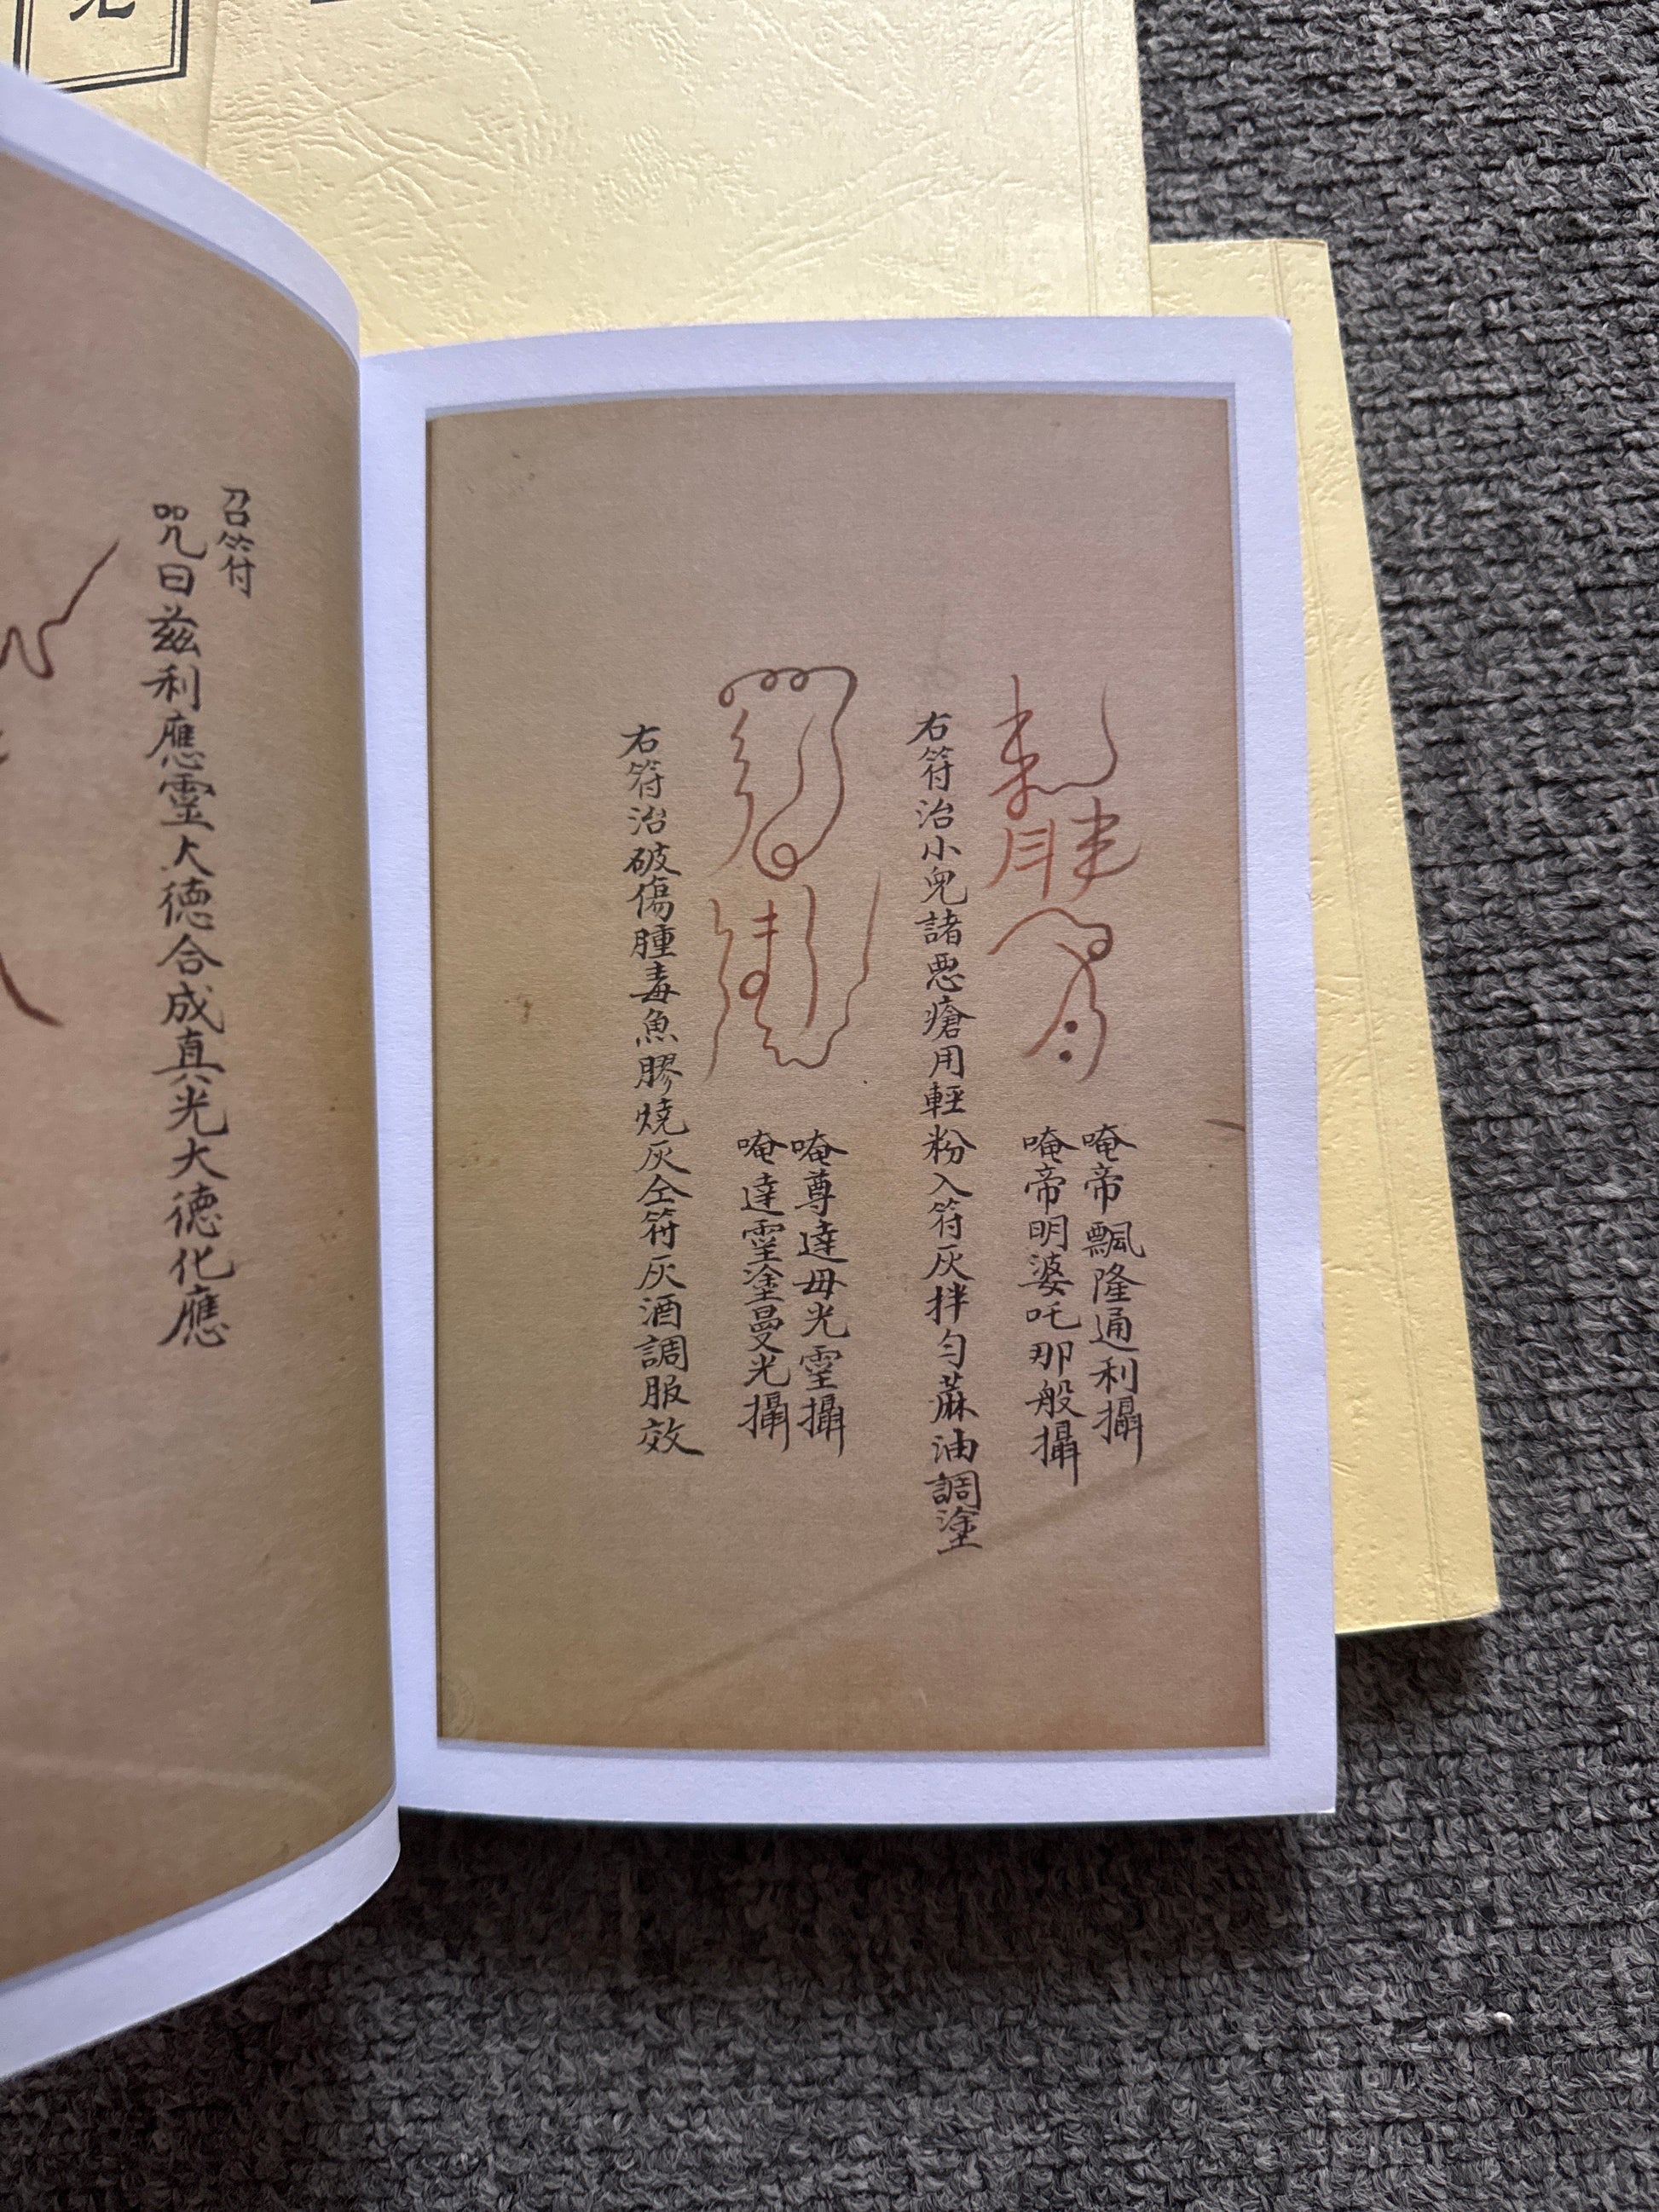 唵帝飄隆通利攝
唵帝明婆吒那般攝
右符治小兒諸惡瘡用輕粉入符灰拌勻蔴油調塗
唵尊達毋光霊攝
唵達霊塗曼光攝
右符治破傷腫毒魚膠燒灰仝符灰酒調服效
召符
咒曰兹利應霊大德合成真光大德化應